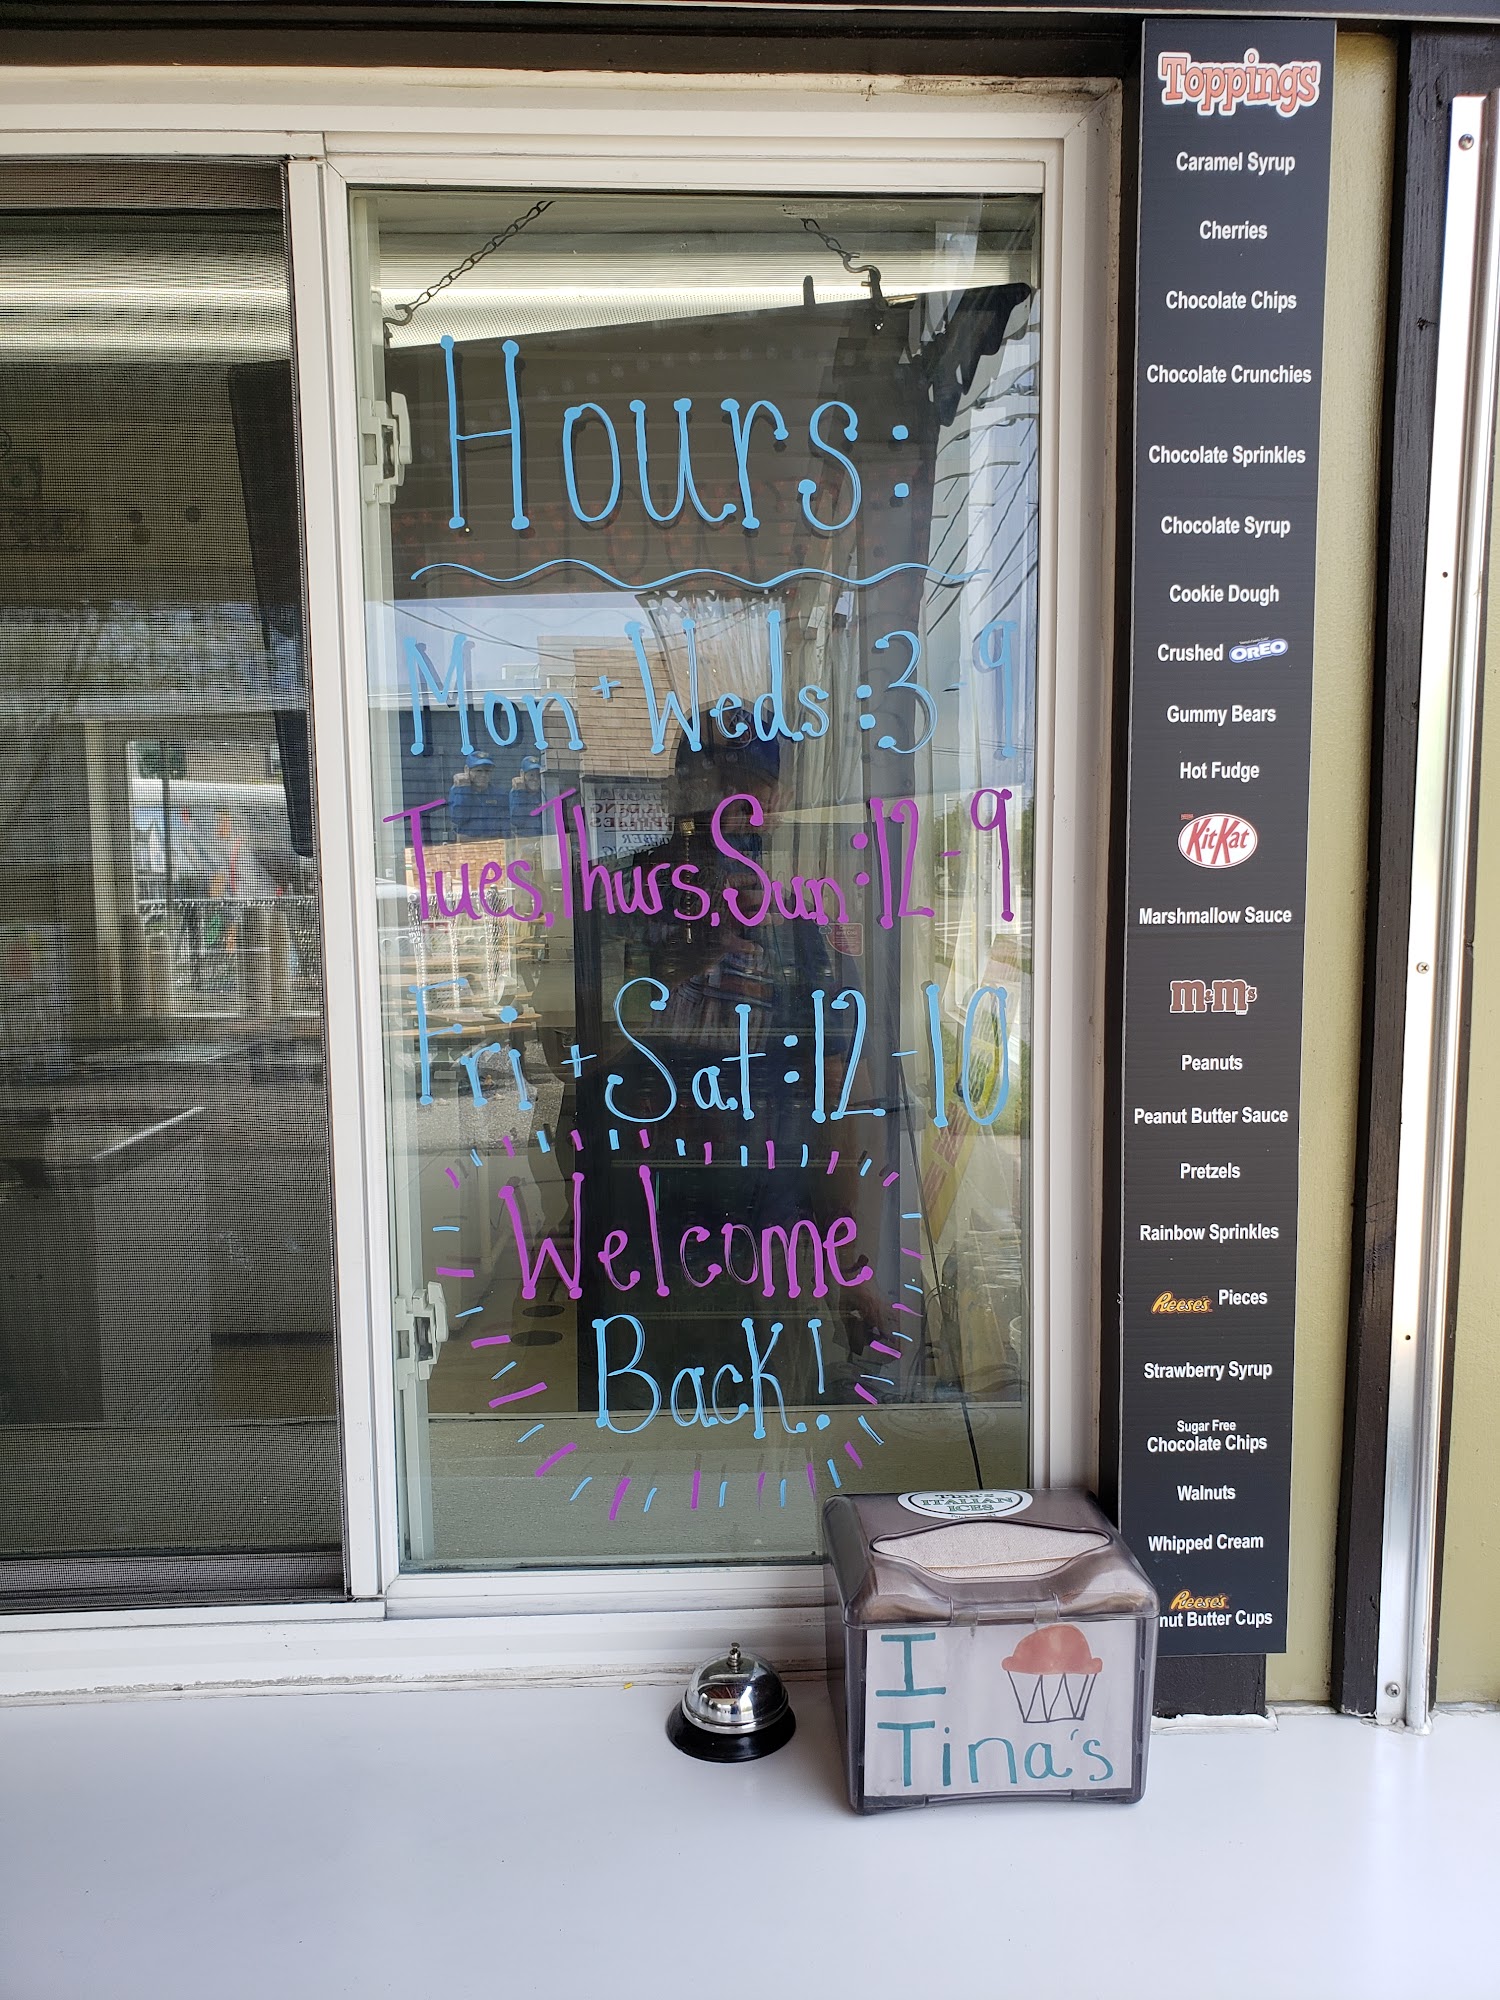 Hours:
Mon + Weds: 3-9
Tues, Thurs, Sun: 12-9
Fri + Sat: 12-10
Welcome
Back!
Toppings
Caramel Syrup
Cherries
Chocolate Chips
Chocolate Crunchies
Chocolate Sprinkles
Chocolate Syrup
Cookie Dough
Crushed OREO
Gummy Bears
Hot Fudge
KitKat
Marshmallow Sauce
m&m's
Peanuts
Peanut Butter Sauce
Pretzels
Rainbow Sprinkles
Reese's Pieces
Strawberry Syrup
Sugar Free
Chocolate Chips
Walnuts
Whipped Cream
Reese's
nut Butter Cups
Tina's
ITALIAN
ICES
I
Tina's